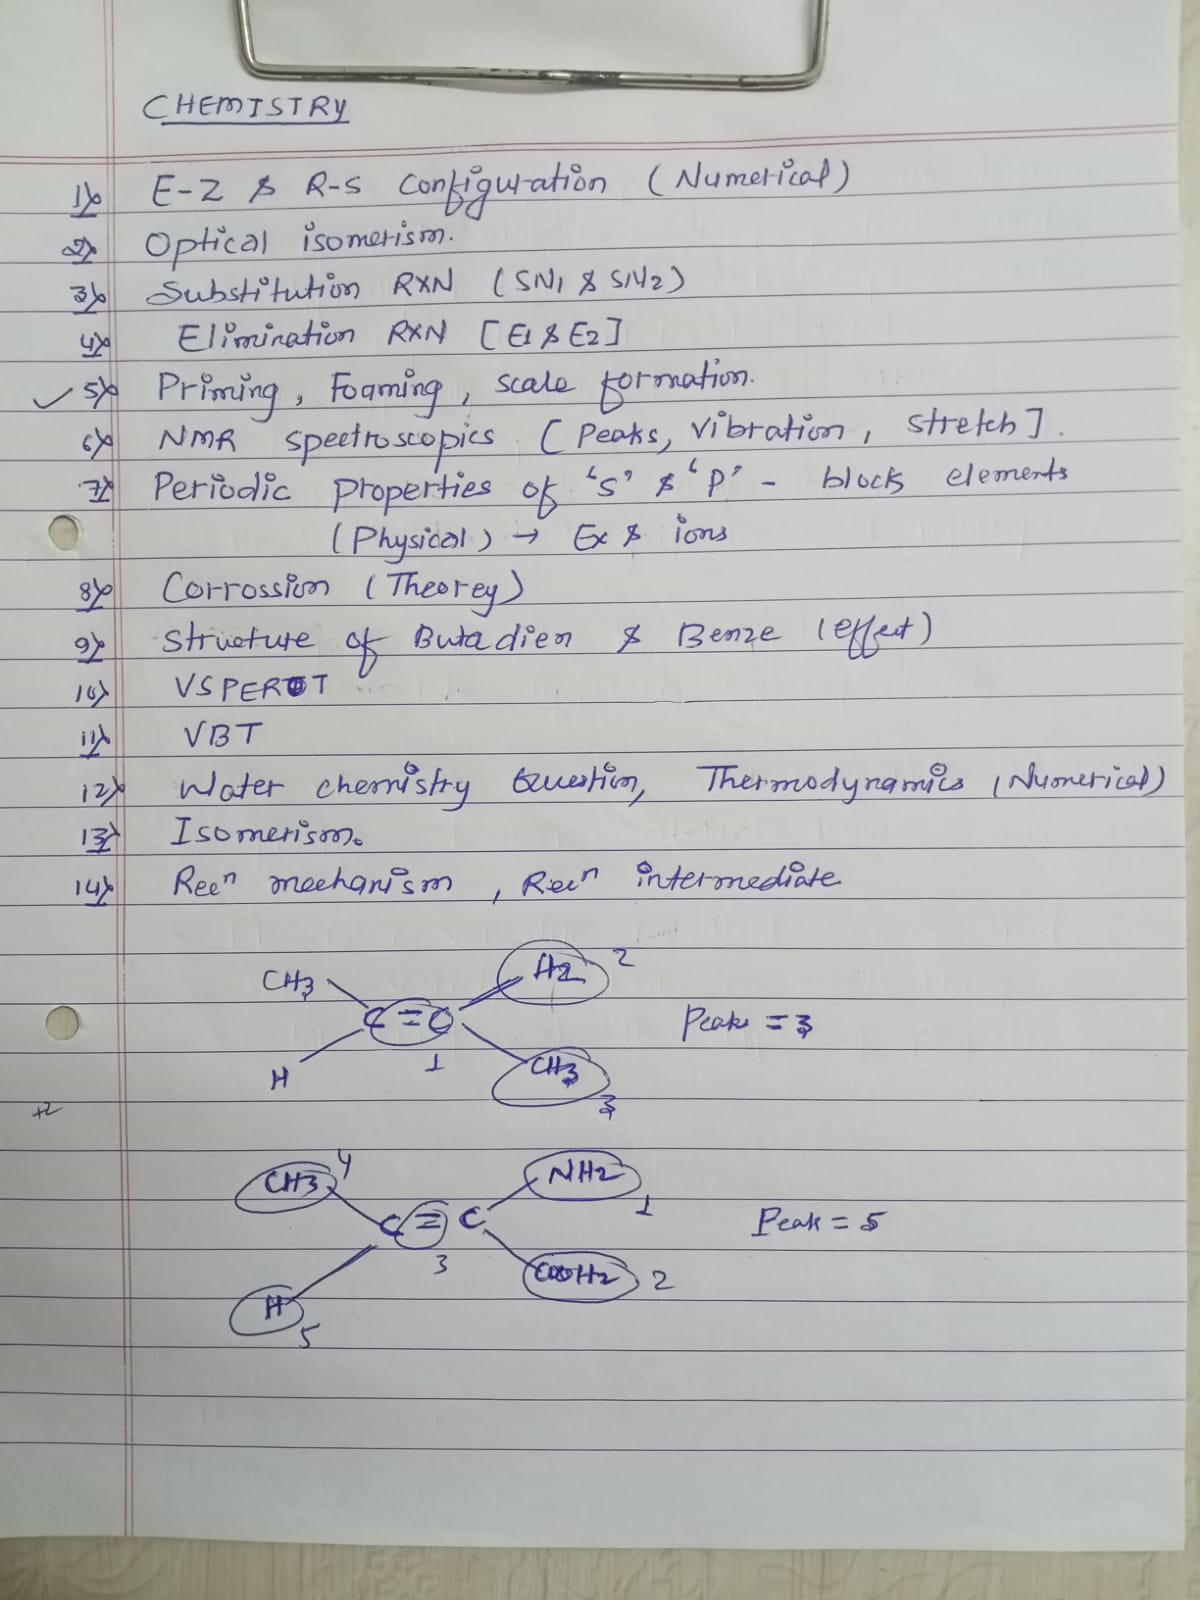 CHEMISTRY
1) E-Z & R-S configuration (Numerical)
2) Optical isomerism.
3) Substitution RXN (SN1 & SN2)
4) Elimination RXN [E1 & E2]
✓ 5) Priming, Foaming, scale formation.
6) NMR spectroscopics [Peaks, vibration, stretch].
7) Periodic properties of 's' & 'p' - block elements
(Physical) → Ex & ions
8) Corrossion (Theorey)
9) Structure of Butadien & Benze (effect)
10) VSPERT
11) VBT
12) Water chemistry Question, Thermodynamics (Numerical)
13) Isomerism.
14) Recn mechanism, Recn intermediate
CH3 H2 2
C=C Peak = 3
H 1 CH3 3
+2
CH3 4 NH2 1
C=C Peak = 5
3 COOH2 2
H 5